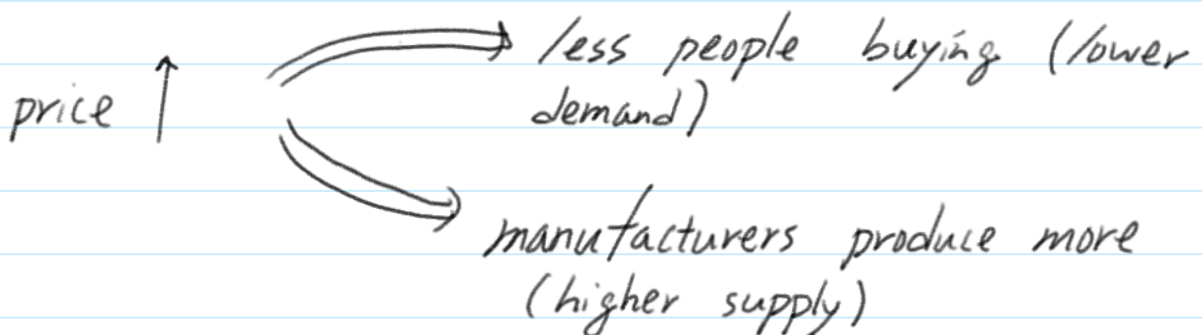 less people buying (lower
price ↑
demand)
manufacturers produce more
(higher supply)